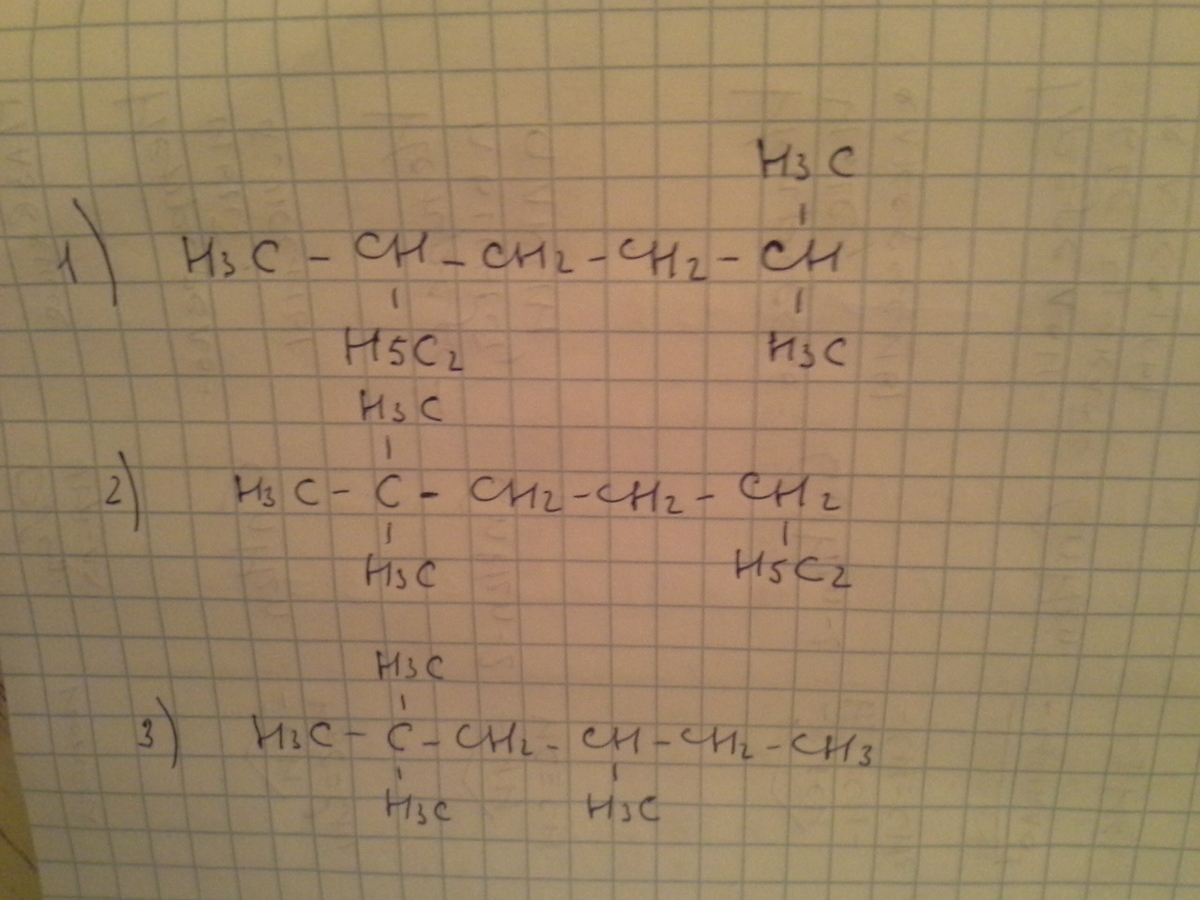 H3C
1) H3C - CH - CH2 - CH2 - CH
H5C2 H3C
H3C
2) H3C - C - CH2 - CH2 - CH2
H3C H5C2
H3C
3) H3C - C - CH2 - CH - CH2 - CH3
H3C H3C